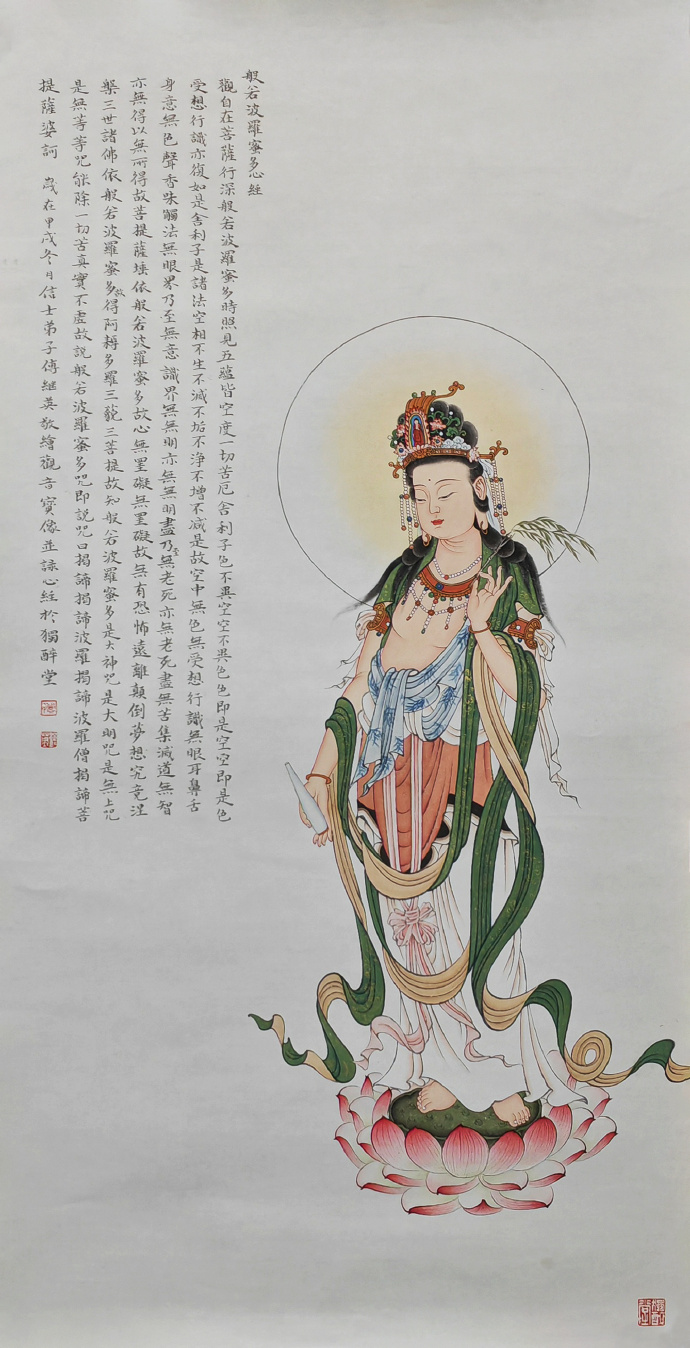 般若波羅蜜多心経
觀自在菩薩行深般若波羅蜜多時照見五蘊皆空度一切苦厄舍利子色不異空空不異色色即是空空即是色
受想行識亦復如是舍利子是諸法空相不生不滅不垢不淨不增不減是故空中無色無受想行識無眼耳鼻舌
身意無色聲香味觸法無眼界乃至無意識界無無明亦無無明盡乃至無老死亦無老死盡無苦集滅道無智
亦無得以無所得故菩提薩埵依般若波羅蜜多故心無罣礙無罣礙故無有恐怖遠離顛倒夢想究竟涅
槃三世諸佛依般若波羅蜜多故得阿耨多羅三藐三菩提故知般若波羅蜜多是大神咒是大明咒是無上咒
是無等等咒能除一切苦真實不虛故說般若波羅蜜多咒即說咒曰揭諦揭諦波羅揭諦波羅僧揭諦菩
提薩婆訶 歲在甲戌冬日信士弟子傅継英敬繪觀音寶像並錄心経於獨醉堂